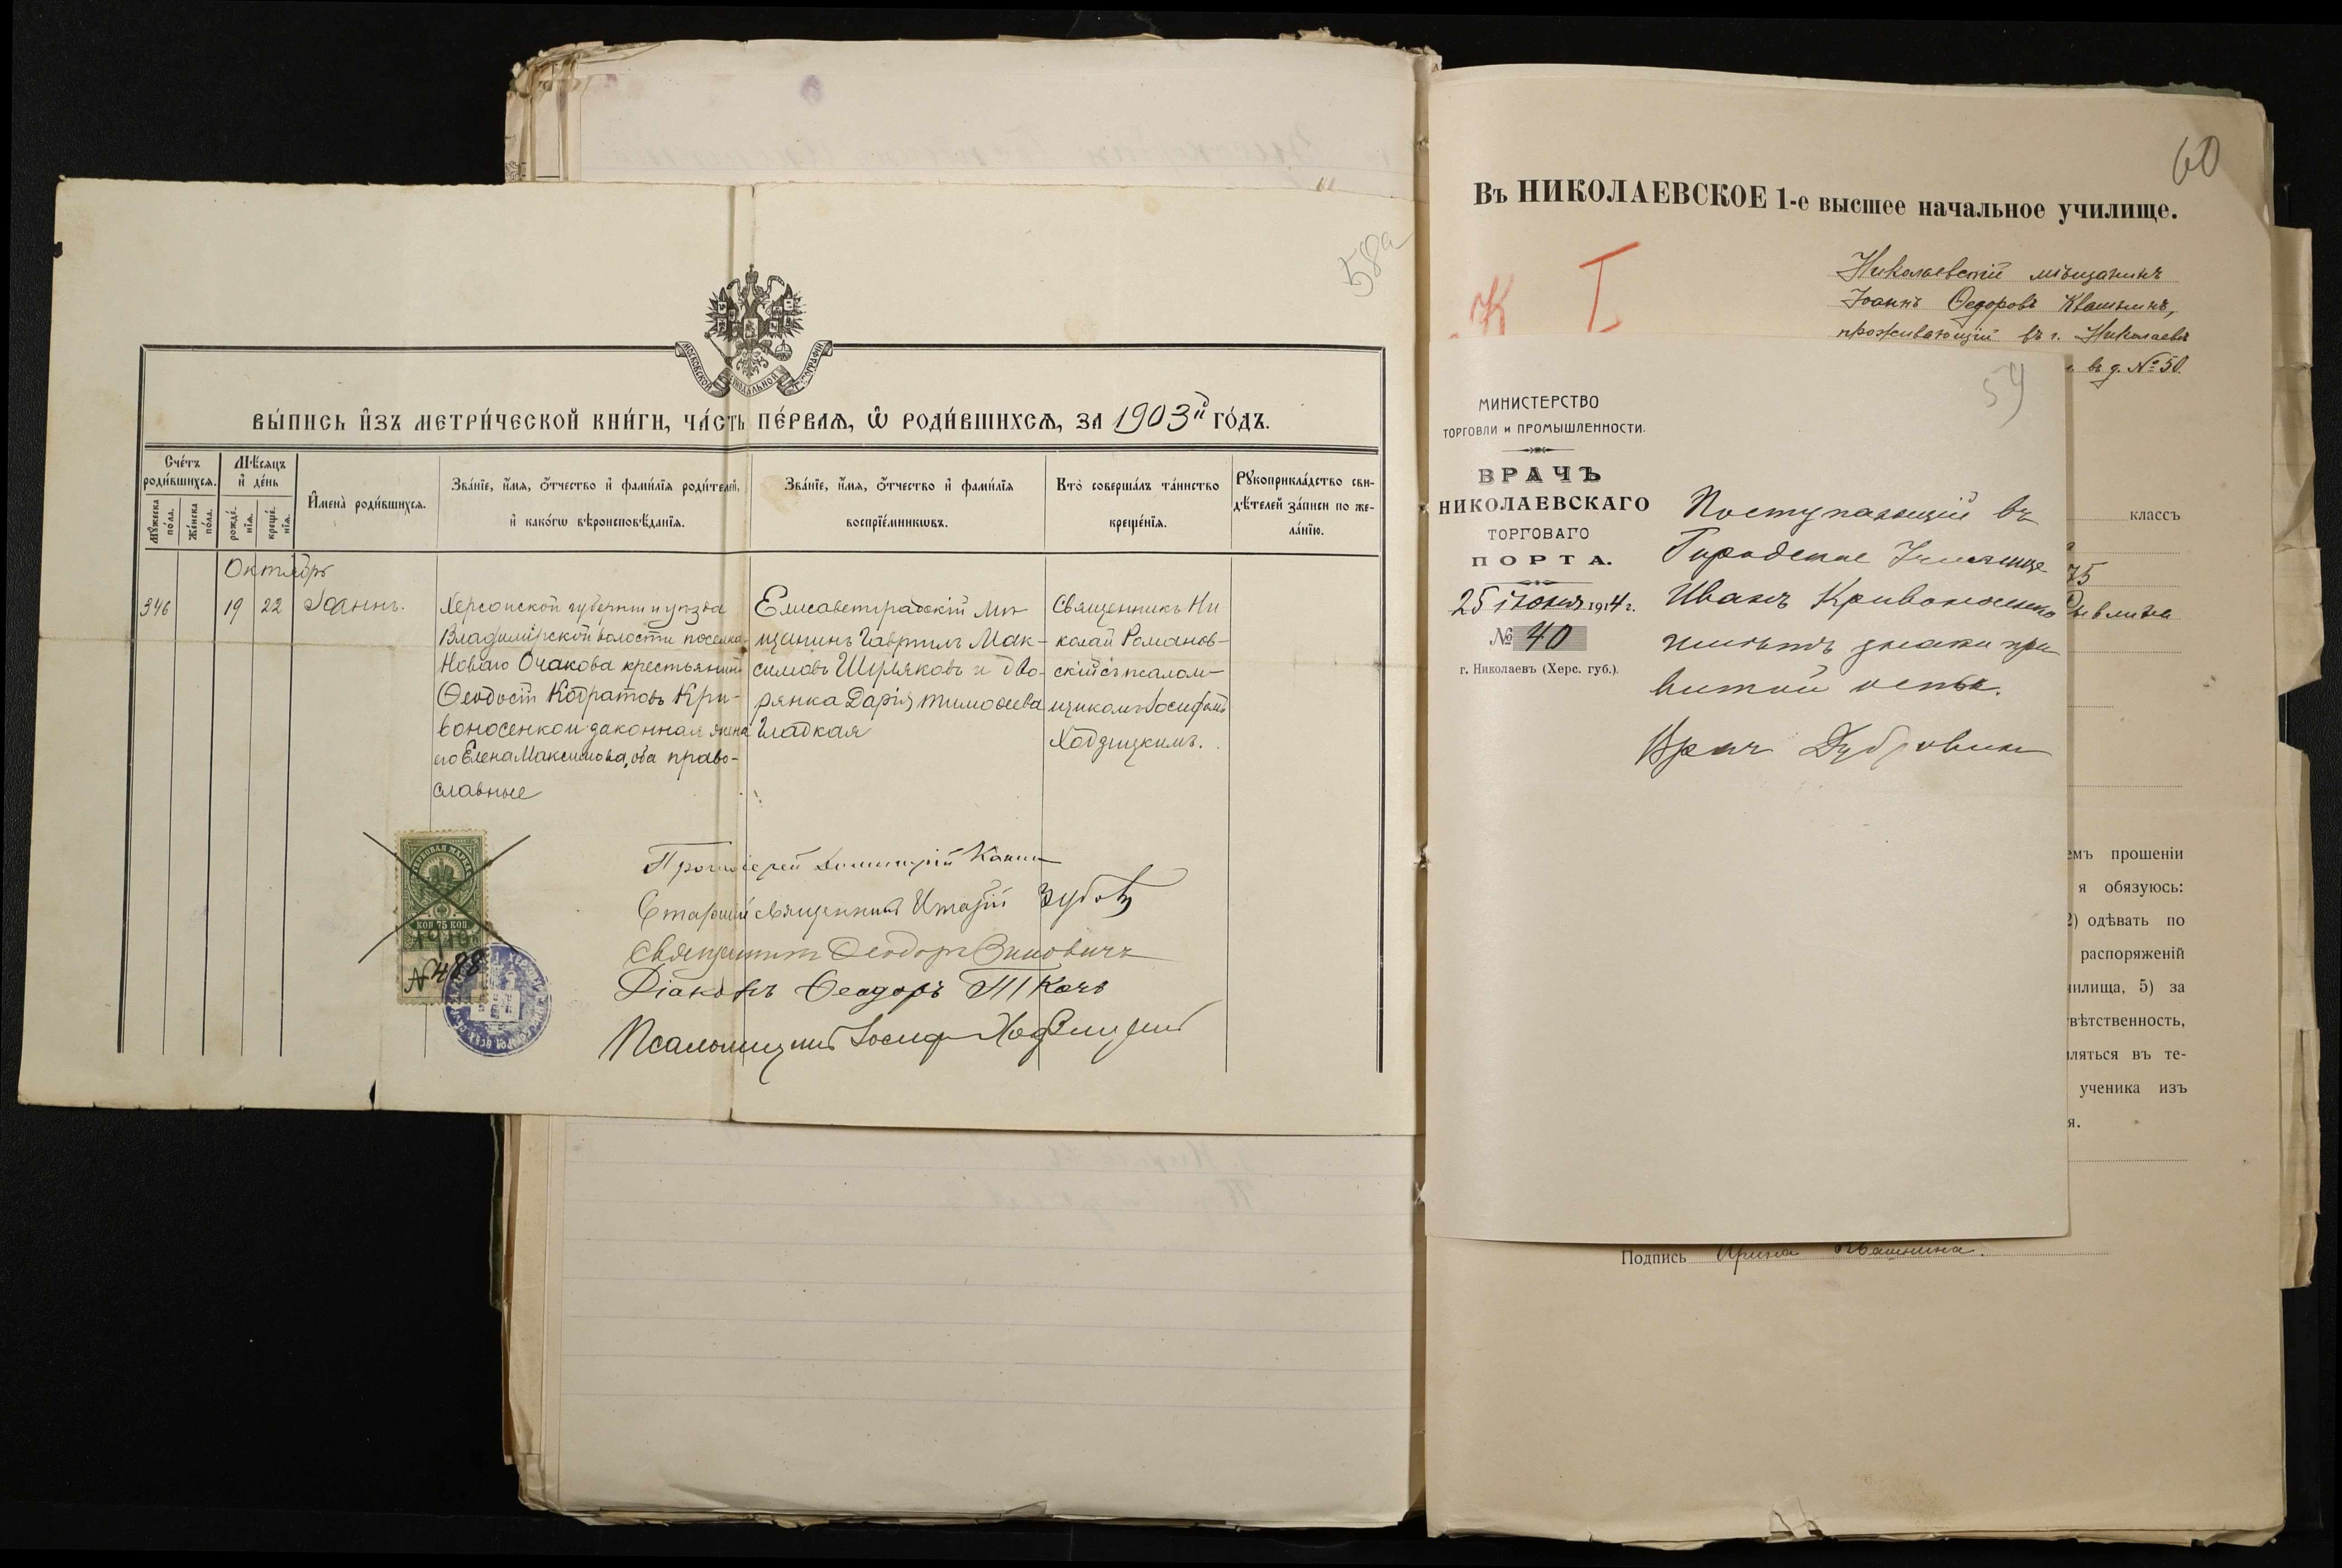 58а
МОСКОВСКОЙ СѴНОДАЛЬНОЙ ТѴПОГРАФІИ
ВЫ́ПИСЬ И҆ЗЪ МЕТРИ́ЧЕСКОЙ КНИ́ГИ, ЧА́СТЬ ПЕ́РВАѦ, Ѡ҆ РОДИ́ВШИХСѦ, ЗА 1903й ГО́ДЪ.
Сче́тъ роди́вшихсѧ.
Мꙋ́жеска по́ла.
Же́нска по́ла.
Мѣ́сѧцъ и҆ де́нь
рожде́нїѧ.
креще́нїѧ.
И҆мена̀ роди́вшихсѧ.
Зва́нїе, и҆́мѧ, ѻ҆́тчество и҆ фами́лїѧ роди́телей, и҆ како́гѡ вѣроисповѣ́данїѧ.
Зва́нїе, и҆́мѧ, ѻ҆́тчество и҆ фами́лїѧ воспрїе́мникѡвъ.
Кто̀ соверша́лъ та́инство креще́нїѧ.
Рꙋкоприкла́дство свидѣ́телей за́писи по жела́нїю.
Октябрь
346
19
22
Іоаннъ.
Херсонской губерніи и уѣзда
Владимірской волости поселка
Новаго Очакова крестьянинъ
Ѳеодосій Кодратовъ Кри-
воносенко и законная жена
его Елена Максимова, оба право-
славные
Елисаветградскій мѣ-
щанинъ Гавріилъ Мак-
симовъ Шурляковъ и дво-
рянка Дарія Тимоѳеева
Гладкая
Священникъ Ни-
колай Романов-
скій съ псалом-
щикомъ Іосифомъ
Ходзицкимъ.
ГЕРБОВАЯ МАРКА
КОП 75 КОП
1910
№ 488
Протоіерей Димитрій
Старшій священникъ Зубовъ
Священникъ Ѳеодоръ Зиновичъ
Діаконъ Ѳеодоръ Ткачъ
Псаломщикъ Іосифъ Ходзицкій
60
Въ НИКОЛАЕВСКОЕ 1-е высшее начальное училище.
К I
Николаевскій мѣщанинъ
Іоаннъ Ѳедоровъ Квашнинъ,
проживающій въ г. Николаевѣ
въ д. № 50.
59
МИНИСТЕРСТВО
ТОРГОВЛИ и ПРОМЫШЛЕННОСТИ.
ВРАЧЪ
НИКОЛАЕВСКАГО
ТОРГОВАГО
ПОРТА.
25 іюня 1914 г.
№ 40
г. Николаевъ (Херс. губ.).
Поступающій въ
Городское Училище
Иванъ Кривоносенко
имѣетъ знаки при
витой оспы.
Врачъ Дубровин
классъ
75
емъ прошеніи
я обязуюсь:
2) одѣвать по
распоряженій
илища, 5) за
вѣтственность,
ляться въ те-
ученика изъ
я.
Подпись Ирина Квашнина.